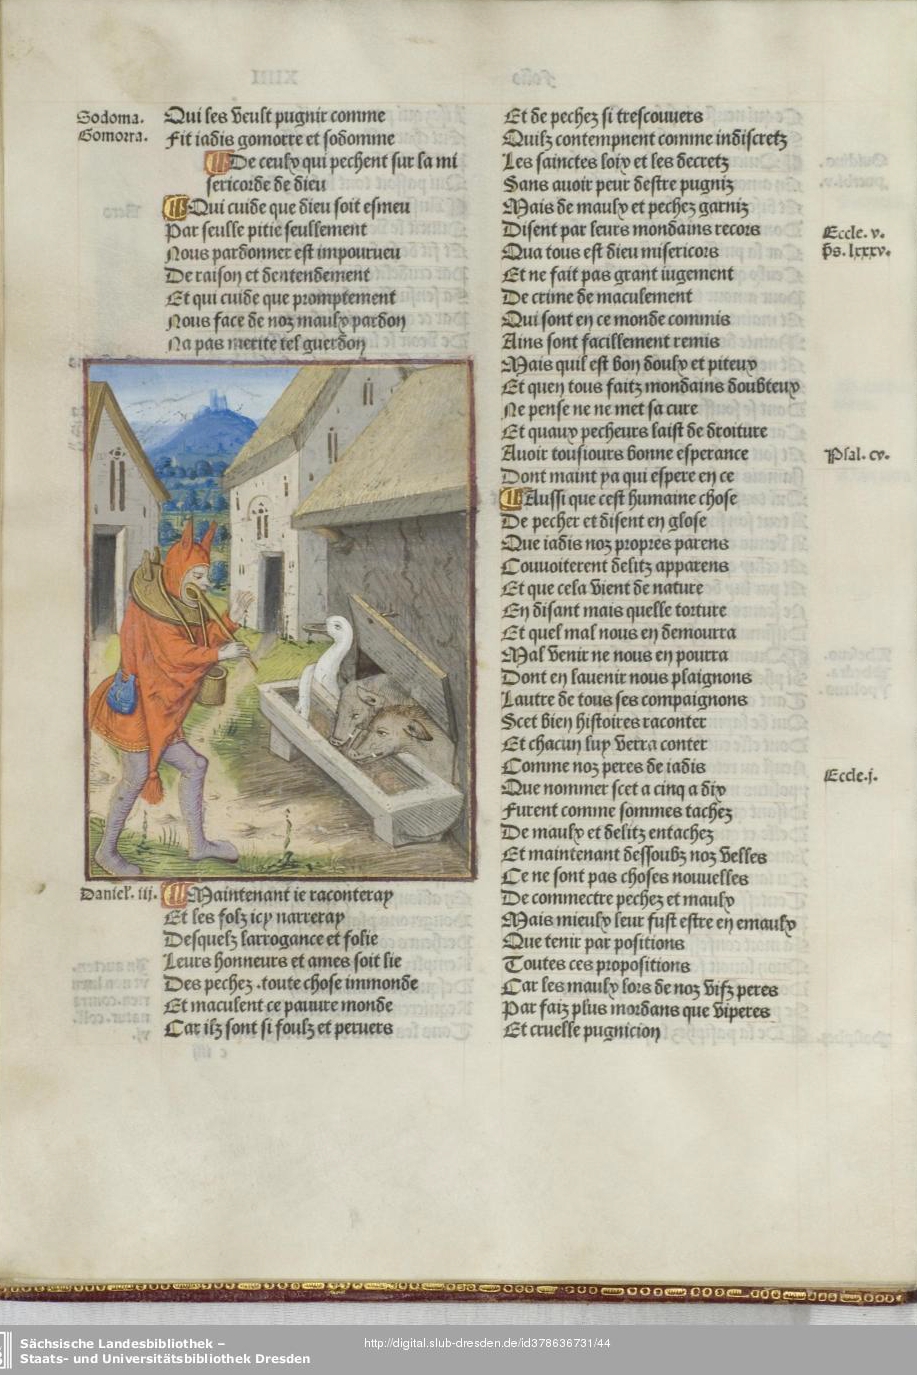 Sodoma.
Gomorra.
Qui les veult pugnir comme
Fit iadis gomorre et sodomme
De ceulx qui pechent sur la mi
sericorde de dieu
Qui cuide que dieu soit esmeu
Par seulle pitie seullement
Nous pardonner est impourueu
De raison et dentendement
Et qui cuide que promptement
Nous face de noz maulx pardon
Na pas merite tel guerdon
Daniel. iij.
Maintenant ie raconteray
Et les folz icy narreray
Desquelz larrogance et folie
Leurs honneurs et ames soit lie
Des pechez .toute chose immonde
Et maculent ce pauure monde
Car ilz sont si foulz et peruers
Et de pechez si trescouuers
Quilz contempnent comme indiscretz
Les sainctes loix et les decretz
Sans auoir peur destre pugniz
Mais de maulx et pechez garniz
Disent par leurs mondains recors
Eccle. v.
Qua tous est dieu misericors
ps. lxxxv.
Et ne fait pas grant iugement
De crime de maculement
Qui sont en ce monde commis
Ains sont facillement remis
Mais quil est bon doulx et piteux
Et quen tous faitz mondains doubteux
Ne pense ne ne met sa cure
Et quaux pecheurs laist de droiture
Auoir tousiours bonne esperance
Psal. cv.
Dont maint ya qui espere en ce
Aussi que cest humaine chose
De pecher et disent en glose
Que iadis noz propres parens
Couuoiterent delitz apparens
Et que cela vient de nature
En disant mais quelle torture
Et quel mal nous en demourra
Mal venir ne nous en pourra
Dont en lauenir nous plaignons
Lautre de tous ses compaignons
Scet bien histoires raconter
Et chacun luy verra conter
Comme noz peres de iadis
Eccle. j.
Que nommer scet a cinq a dix
Furent comme sommes tachez
De maulx et delitz entachez
Et maintenant dessoubz noz velles
Ce ne sont pas choses nouuelles
De commectre pechez et maulx
Mais mieulx leur fust estre en emaulx
Que tenir par positions
Toutes ces propositions
Car les maulx lors de noz vifz peres
Par faiz plus mordans que viperes
Et cruelle pugnicion
Sächsische Landesbibliothek –
Staats- und Universitätsbibliothek Dresden
http://digital.slub-dresden.de/id378636731/44